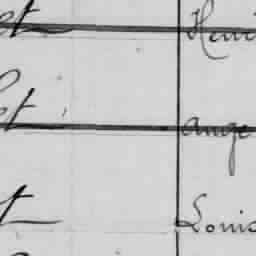 et Henri
et Ange
t Louis